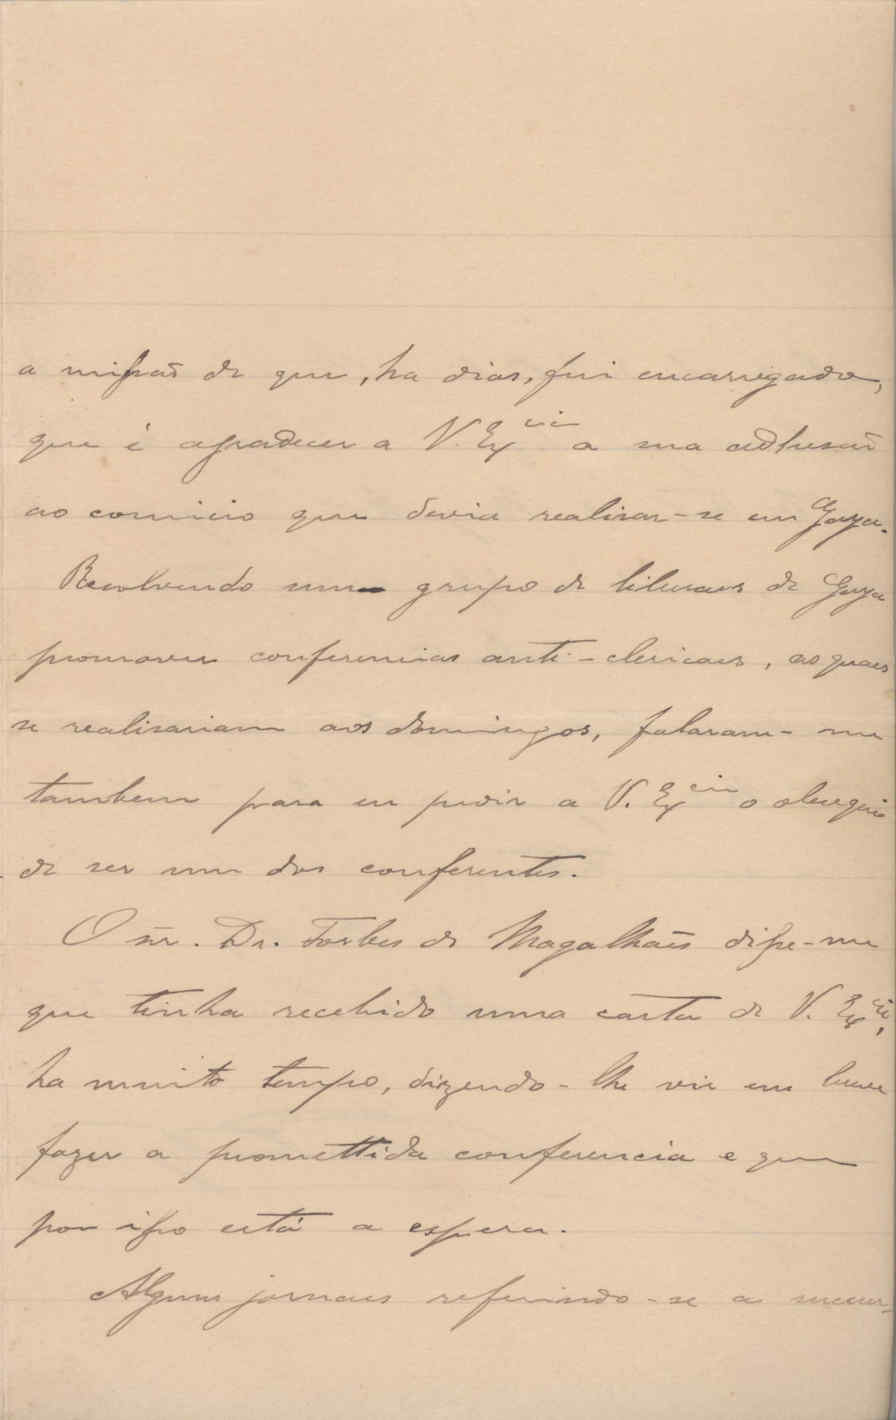 a missão de que, ha dias, fui encarregado,
que é agradecer a V. Ex.cia a sua adhesão
ao comicio que devia realisar-se em Gaya.
Resolvendo um grupo de liberaes de Gaya
promover conferencias anti-clericaes, as quaes
se realisariam aos domingos, falaram-me
tambem para eu pedir a V. Ex.cia o obsequio
de ser um dos conferentes.
O sr. Dr. Forbes de Magalhães disse-me
que tinha recebido uma carta de V. Ex.cia,
ha muito tempo, dizendo-lhe vir em breve
fazer a promettida conferencia e que
por isso está a espera.
Alguns jornaes referindo-se a